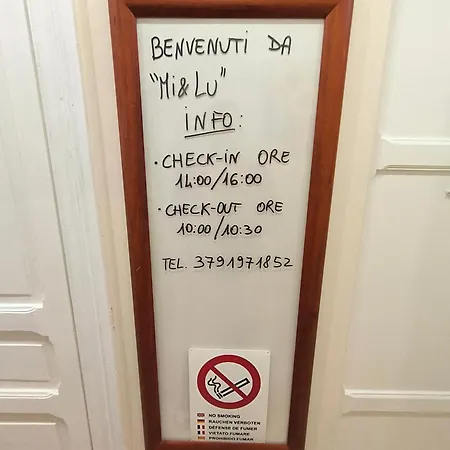 BENVENUTI DA
"Mi&Lu"
INFO:
· CHECK-IN ORE
14:00/16:00
· CHECK-OUT ORE
10:00/10:30
TEL. 3791971852
NO SMOKING
RAUCHEN VERBOTEN
DÉFENSE DE FUMER
VIETATO FUMARE
PROHIBIDO FUMAR